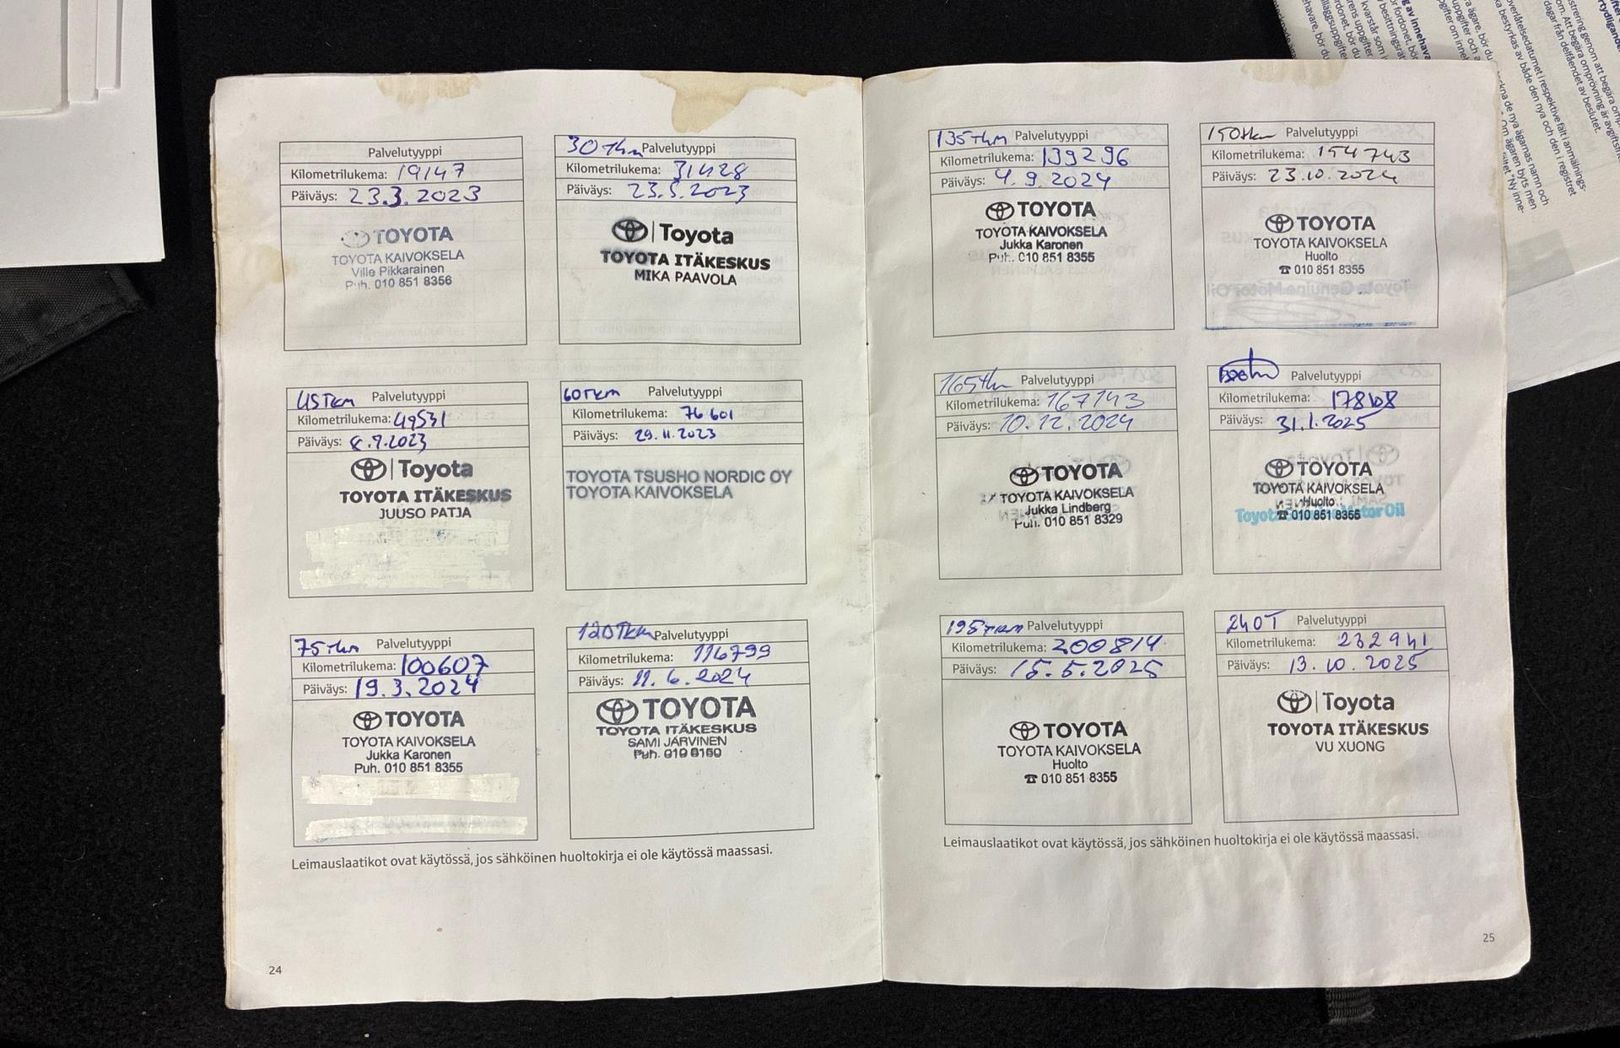 Palvelutyyppi
Kilometrilukema: 19147
Päiväys: 23.3.2023
TOYOTA
TOYOTA KAIVOKSELA
Ville Pikkarainen
Puh. 010 851 8356
30 Tkm Palvelutyyppi
Kilometrilukema: 31428
Päiväys: 23.5.2023
Toyota
TOYOTA ITÄKESKUS
MIKA PAAVOLA
45 Tkm Palvelutyyppi
Kilometrilukema: 49531
Päiväys: 8.9.2023
Toyota
TOYOTA ITÄKESKUS
JUUSO PATJA
60 Tkm Palvelutyyppi
Kilometrilukema: 76 601
Päiväys: 29.11.2023
TOYOTA TSUSHO NORDIC OY
TOYOTA KAIVOKSELA
75 Tkm Palvelutyyppi
Kilometrilukema: 100607
Päiväys: 19.3.2024
TOYOTA
TOYOTA KAIVOKSELA
Jukka Karonen
Puh. 010 851 8355
120 Tkm Palvelutyyppi
Kilometrilukema: 116799
Päiväys: 11.6.2024
TOYOTA
TOYOTA ITÄKESKUS
SAMI JÄRVINEN
Puh.
Leimauslaatikot ovat käytössä, jos sähköinen huoltokirja ei ole käytössä maassasi.
24
135 Tkm Palvelutyyppi
Kilometrilukema: 139296
Päiväys: 4.9.2024
TOYOTA
TOYOTA KAIVOKSELA
Jukka Karonen
Puh. 010 851 8355
150 tkm Palvelutyyppi
Kilometrilukema: 154743
Päiväys: 23.10.2024
TOYOTA
TOYOTA KAIVOKSELA
Huolto
☎ 010 851 8355
165 tkm Palvelutyyppi
Kilometrilukema: 167143
Päiväys: 10.12.2024
TOYOTA
TOYOTA KAIVOKSELA
Jukka Lindberg
Puh. 010 851 8329
Palvelutyyppi
Kilometrilukema:
Päiväys: 31.1.2025
TOYOTA
TOYOTA KAIVOKSELA
Huolto
☎ 010 851 8355
Toyota Motor Oil
195 Tkm Palvelutyyppi
Kilometrilukema: 200814
Päiväys: 15.5.2025
TOYOTA
TOYOTA KAIVOKSELA
Huolto
☎ 010 851 8355
240T Palvelutyyppi
Kilometrilukema: 232941
Päiväys: 13.10.2025
Toyota
TOYOTA ITÄKESKUS
VU XUONG
Leimauslaatikot ovat käytössä, jos sähköinen huoltokirja ei ole käytössä maassasi.
25